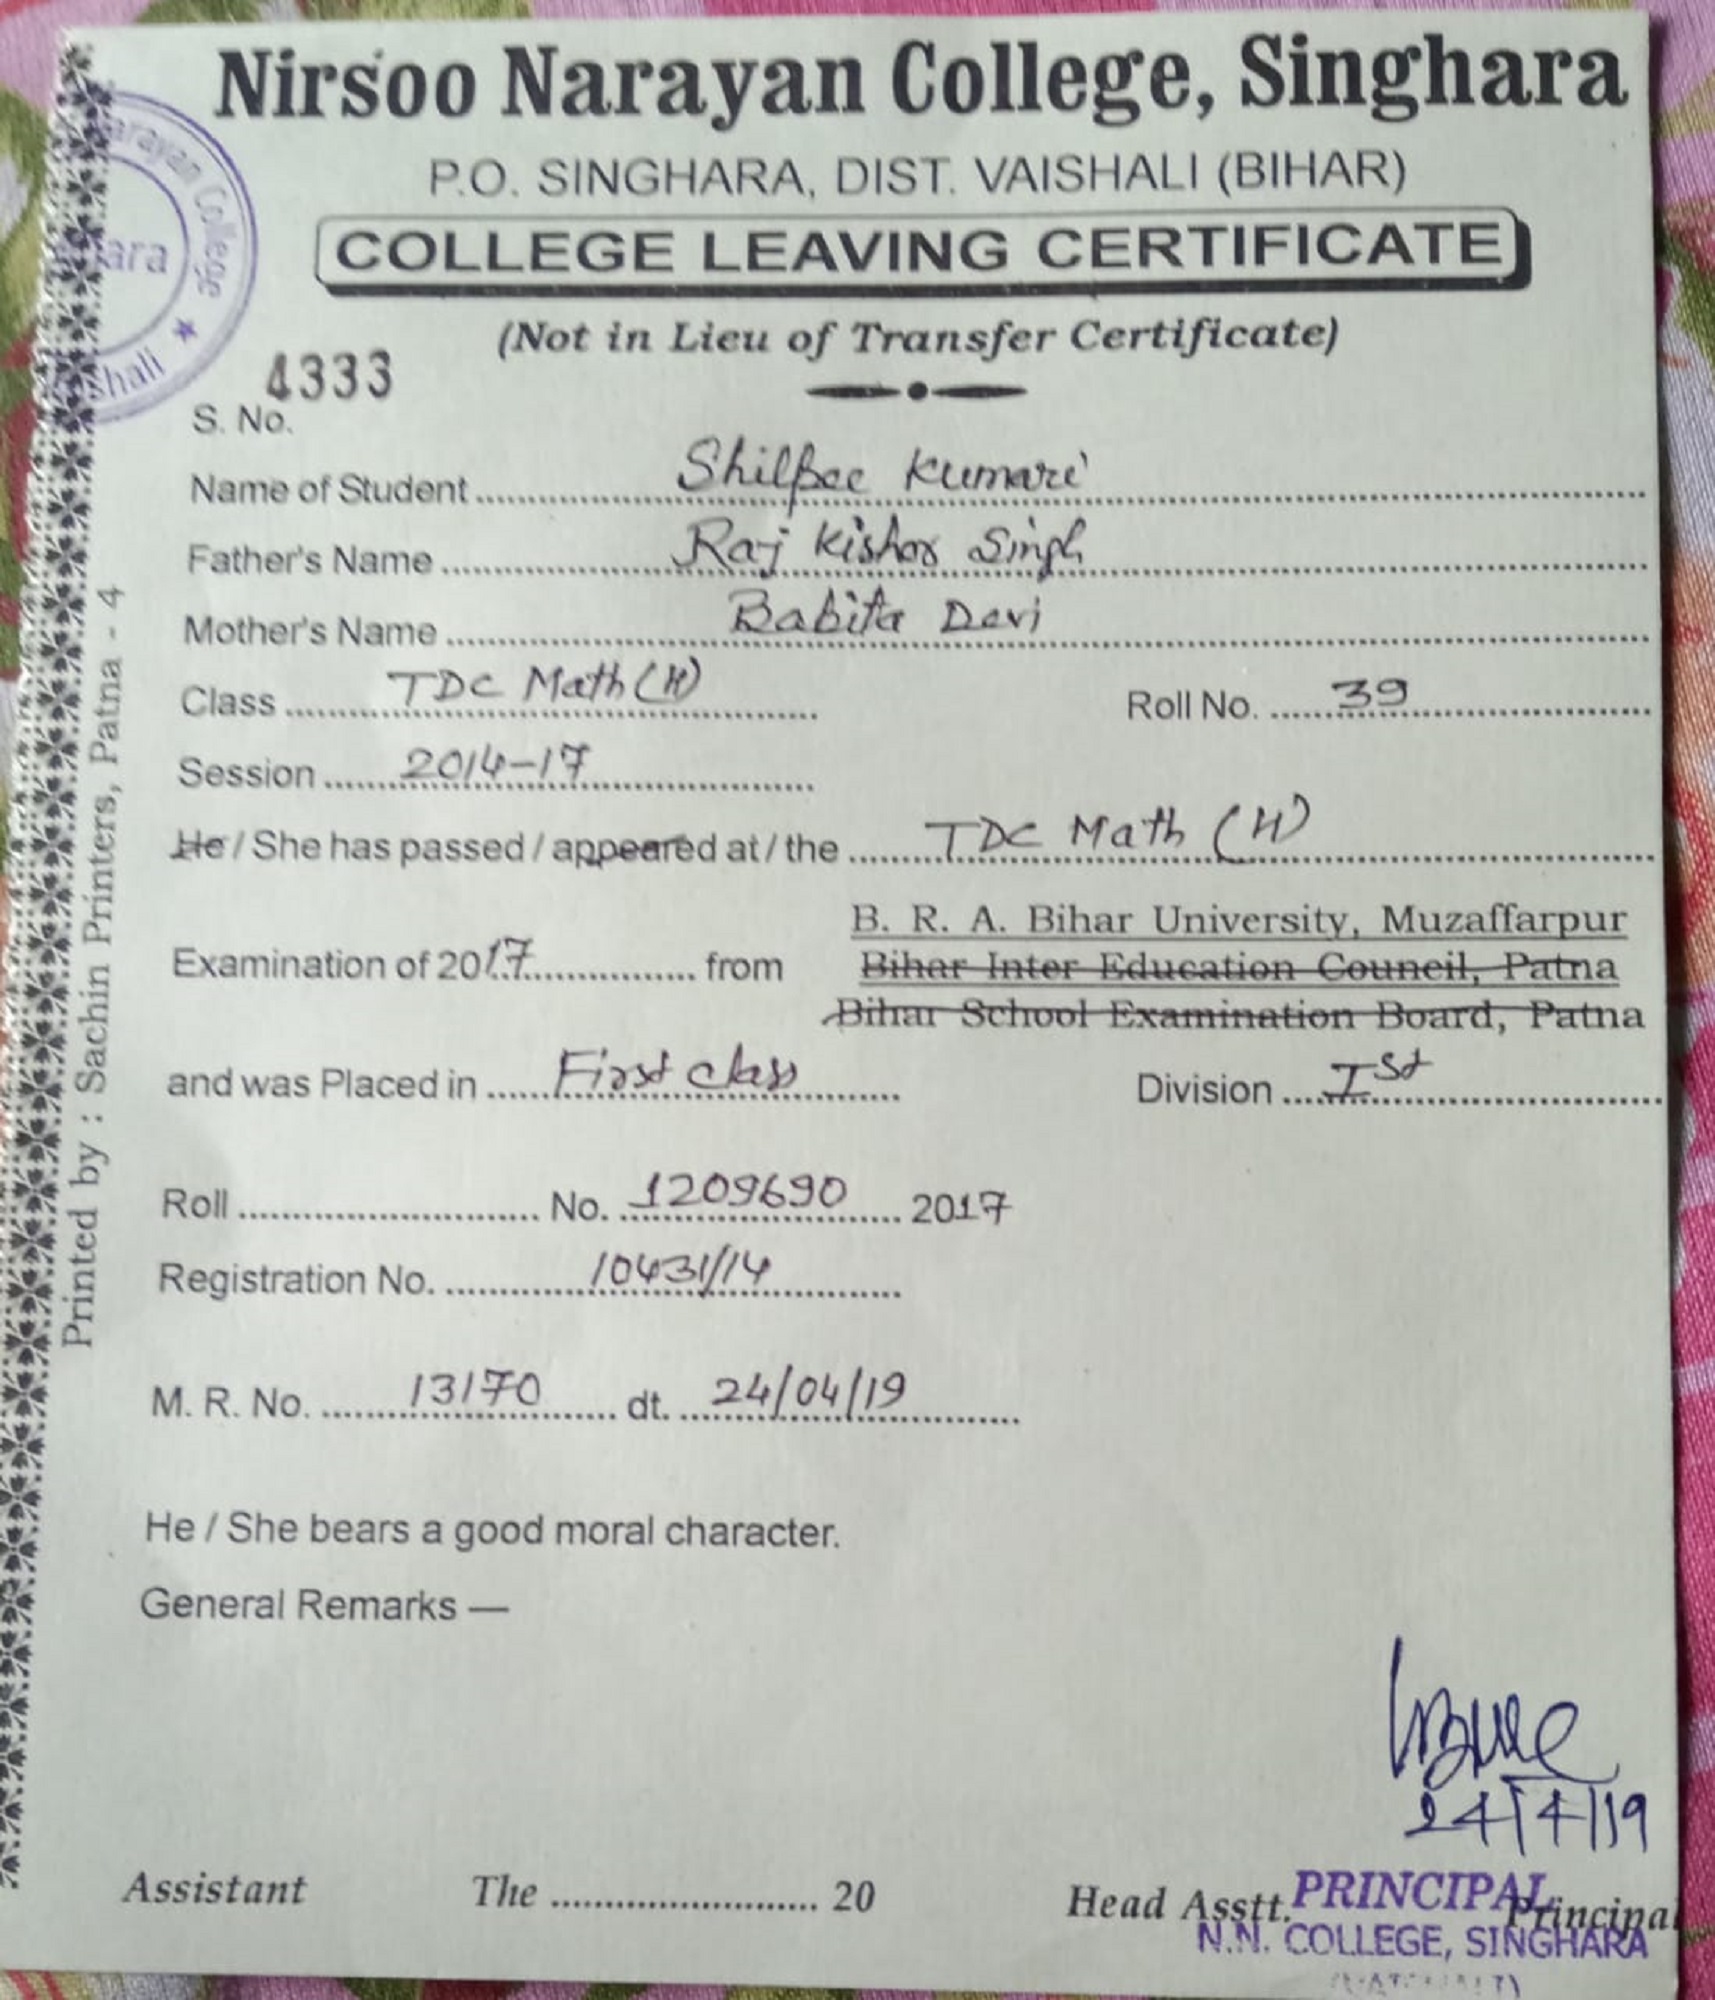 Nirsoo Narayan College, Singhara
P.O. SINGHARA, DIST. VAISHALI (BIHAR)
COLLEGE LEAVING CERTIFICATE
(Not in Lieu of Transfer Certificate)
arayan College
ara
shali
4333
S. No.
Name of Student Shilpee Kumari
Father's Name Raj Kishor Singh
Mother's Name Babita Devi
Class TDC Math (H) Roll No. 39
Session 2014-17
He / She has passed / appeared at / the TDC Math (H)
B. R. A. Bihar University, Muzaffarpur
Examination of 2017 from Bihar Inter Education Council, Patna
Bihar School Examination Board, Patna
and was Placed in First class Division Ist
Roll No. 1209690 2017
Registration No. 10431/14
M. R. No. 13170 dt. 24/04/19
He / She bears a good moral character.
General Remarks —
24/4/19
Assistant The 20 Head Asstt. Principal
PRINCIPAL
N.N. COLLEGE, SINGHARA
Printed by : Sachin Printers, Patna - 4